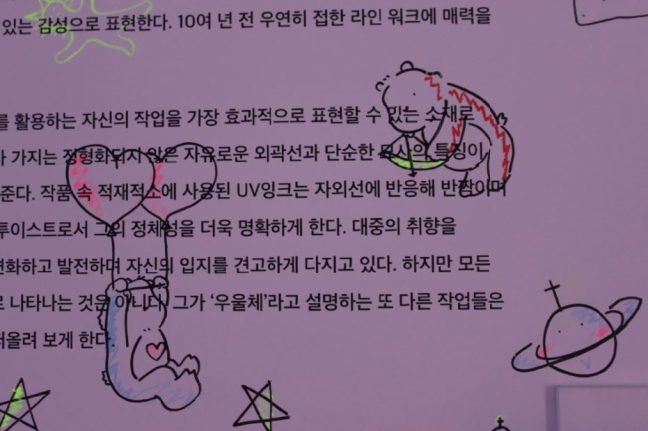 있는 감성으로 표현한다. 10여 년 전 우연히 접한 라인 워크에 매력을
를 활용하는 자신의 작업을 가장 효과적으로 표현할 수 있는 소재로
가 가지는 정형화되지 않은 자유로운 외곽선과 단순한 묘사의 특징이
준다. 작품 속 적재적소에 사용된 UV잉크는 자외선에 반응해 반짝이며
투이스트로서 그의 정체성을 더욱 명확하게 한다. 대중의 취향을
변화하고 발전하며 자신의 입지를 견고하게 다지고 있다. 하지만 모든
로 나타나는 것은 아니다. 그가 ‘우울체’라고 설명하는 또 다른 작업들은
떠올려 보게 한다.